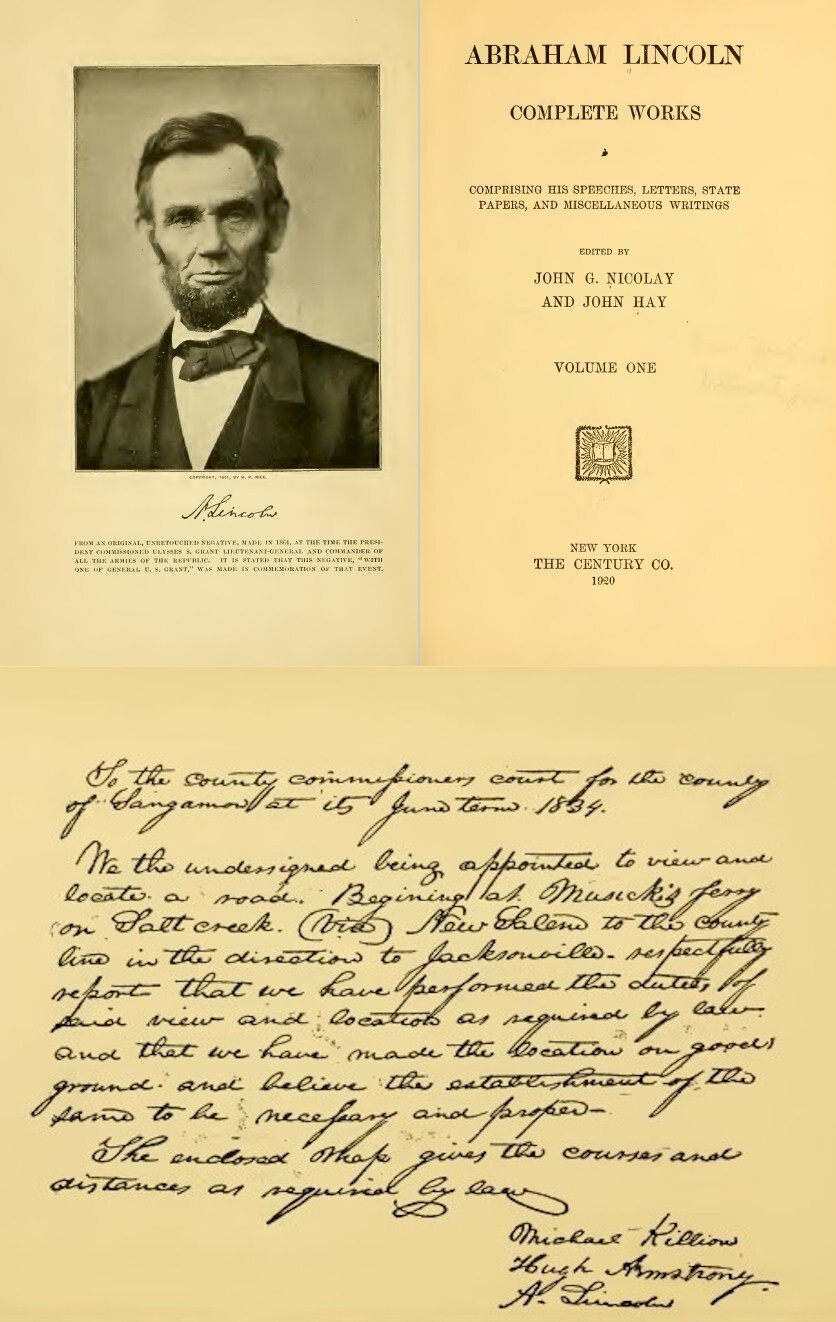 COPYRIGHT, 1891, BY M. P. RICE.
A. Lincoln
FROM AN ORIGINAL, UNRETOUCHED NEGATIVE, MADE IN 1864, AT THE TIME THE PRESI-
DENT COMMISSIONED ULYSSES S. GRANT LIEUTENANT-GENERAL AND COMMANDER OF
ALL THE ARMIES OF THE REPUBLIC. IT IS STATED THAT THIS NEGATIVE, "WITH
ONE OF GENERAL U. S. GRANT," WAS MADE IN COMMEMORATION OF THAT EVENT.
ABRAHAM LINCOLN
COMPLETE WORKS
COMPRISING HIS SPEECHES, LETTERS, STATE
PAPERS, AND MISCELLANEOUS WRITINGS
EDITED BY
JOHN G. NICOLAY
AND JOHN HAY
VOLUME ONE
NEW YORK
THE CENTURY CO.
1920
To the county commissioners court for the county
of Sangamon at its June term 1834.
We the undersigned being appointed to view and
locate a road. Begining at Musick's ferry
on Salt creek. (Via) New Salem to the county
line in the direction to Jacksonville- respectfully
report that we have performed the duties of
said view and location as required by law
and that we have made the location on good
ground- and believe the establishment of the
same to be necessary and proper-
The enclosed map gives the courses and
distances as required by law
Michael Killion
Hugh Armstrong.
A. Lincoln